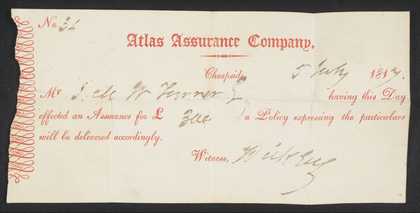 No. 34
Atlas Assurance Company,
Cheapside 5 July 1813.
Mr. J. M. W Turner having this Day
effected an Assurance for £ a Policy expressing the particulars
will be delivered accordingly.
Witness,